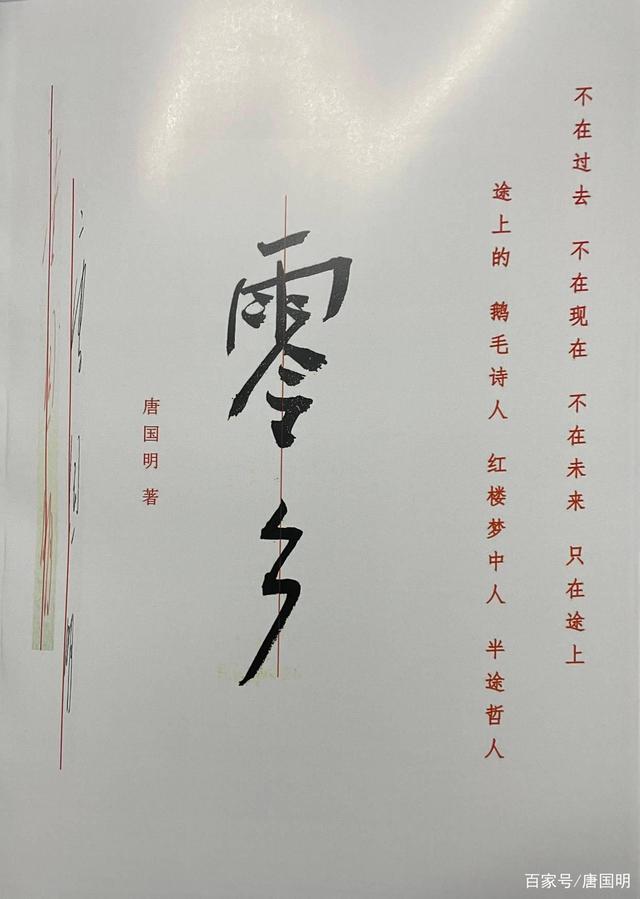 不在过去 不在现在 不在未来 只在途上
途上的 鹅毛诗人 红楼梦中人 半途哲人
零乡
唐国明 著
百家号/唐国明